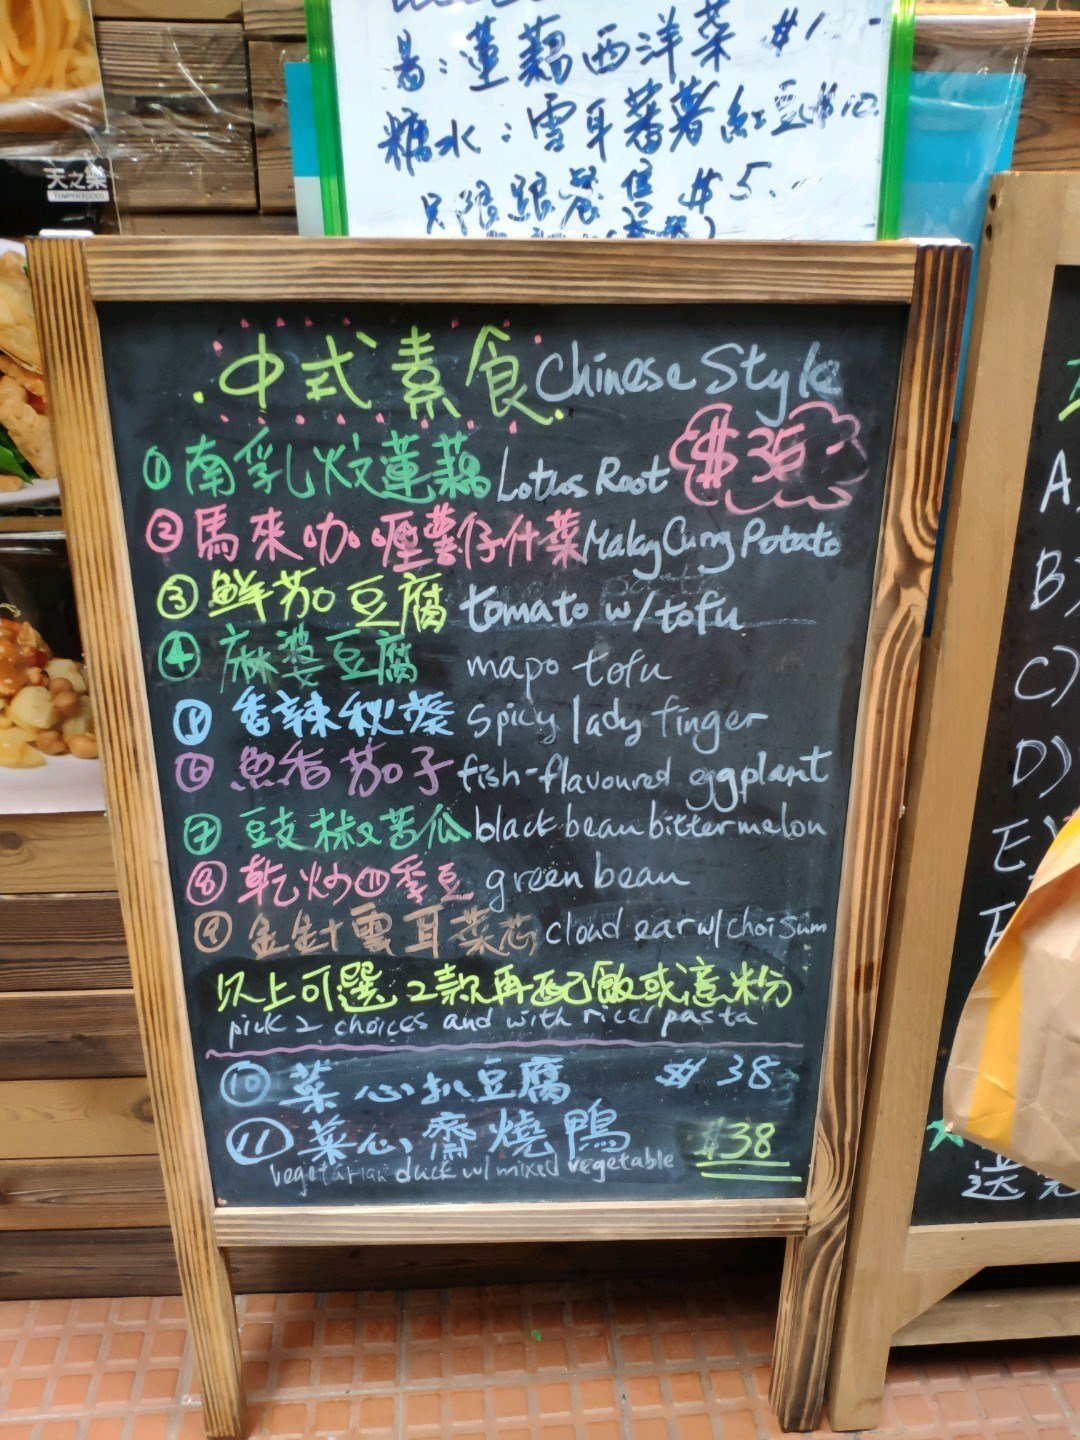 湯：蓮藕西洋菜 $1
糖水：雪耳蕃薯紅豆$10.
只限跟餐售 $5.
天之樂
中式素食 Chinese Style
①南乳炆蓮藕 Lotus Root $35
②馬來咖喱薯仔什菜 Malay Curry Potato
③鮮茄豆腐 tomato w/tofu
④麻婆豆腐 mapo tofu
香辣秋葵 spicy lady finger
⑥魚香茄子 fish-flavoured eggplant
⑦豉椒苦瓜 black bean bittermelon
⑧乾炒四季豆 green bean
⑨金針雲耳菜芯 cloud ear w/ choi sum
以上可選2款再配飯或意粉
pick 2 choices and with rice/pasta
⑩菜心扒豆腐 $38
⑪菜心齋燒鴨 $38
vegetarian duck w/ mixed vegetable
A)
B)
C)
D)
E)
送